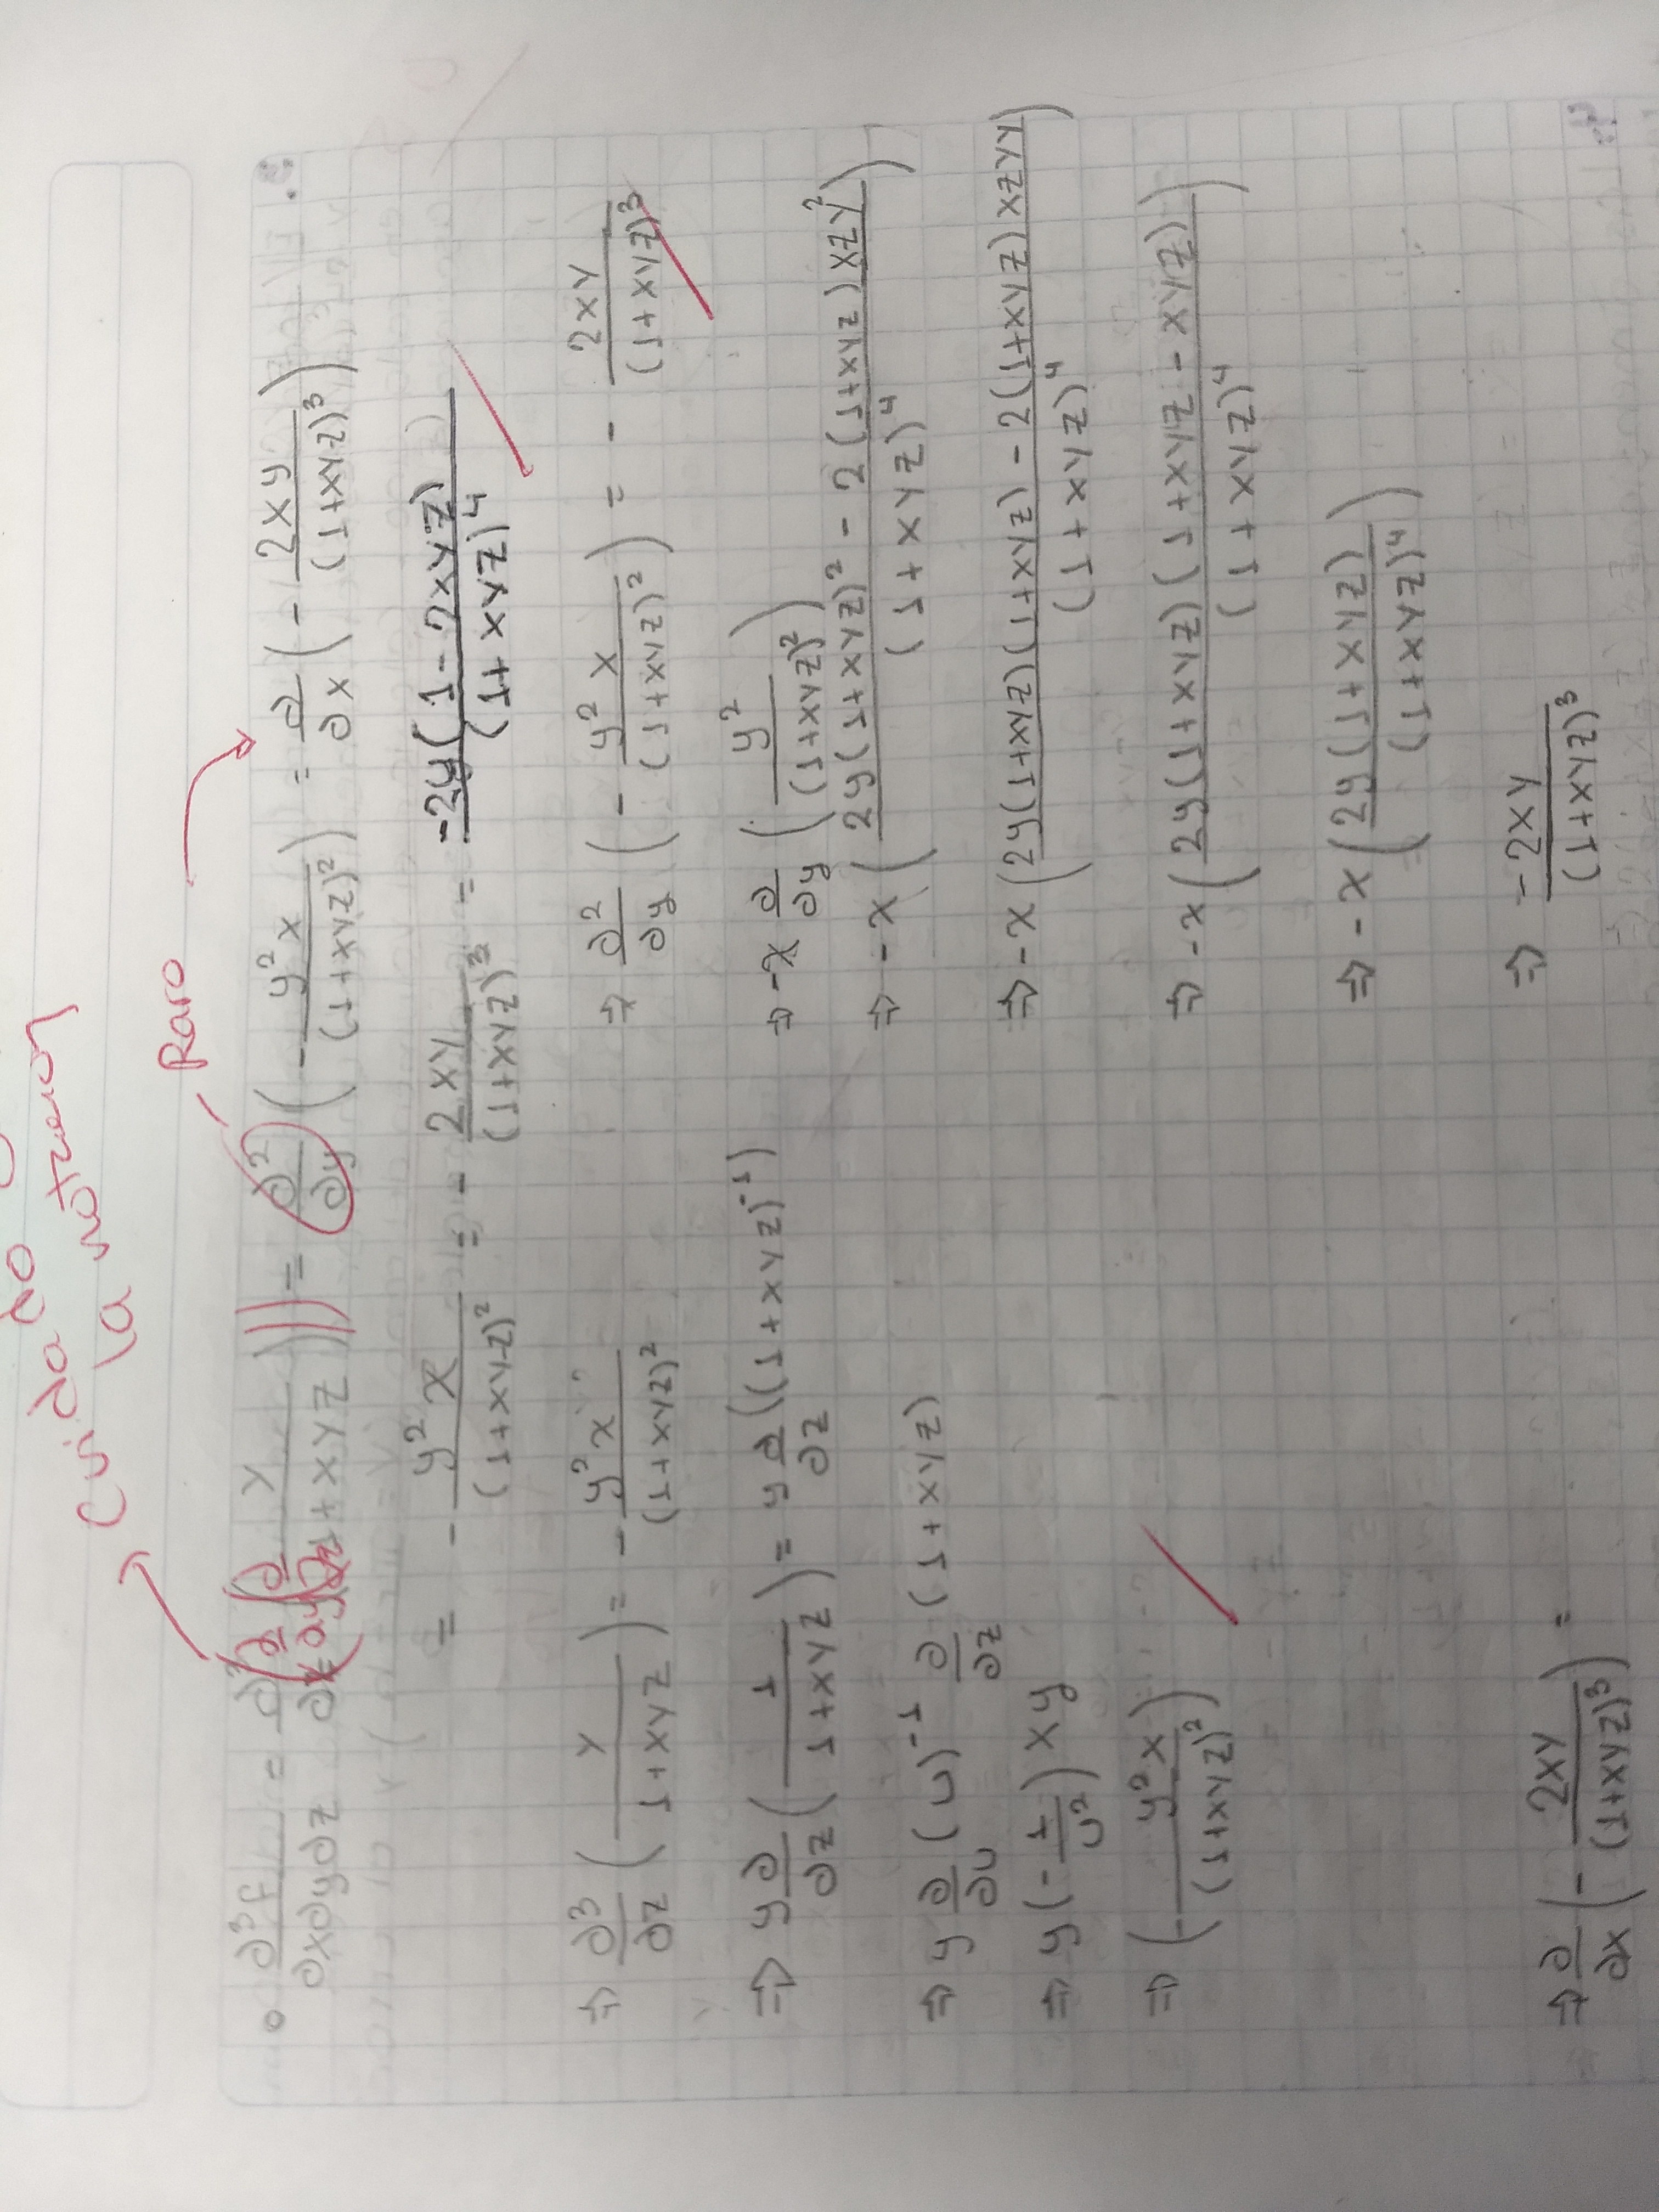 Cuidado
la notacion
Raro
• ∂³f/∂x∂y∂z = ∂³/∂z (∂/∂y (∂/∂z y/1+xyz)) = ∂²/∂y (- y²x/(1+xyz)²) = ∂/∂x (- 2xy/(1+xyz)³)
= - y²x/(1+xyz)² = - 2xy/(1+xyz)³ = -2y(1-2xyz)/(1+xyz)⁴
⇒ ∂3/∂z (y/1+xyz) = - y²x/(1+xyz)²
⇒ y ∂/∂z (1/1+xyz) = y ∂/∂z ((1+xyz)⁻¹)
⇒ y ∂/∂u (u)⁻¹ ∂/∂z (1+xyz)
⇒ y(- 1/u²) xy
⇒ (- y²x/(1+xyz)²)
⇒ ∂/∂x (- 2xy/(1+xyz)³) =
⇒ ∂²/∂y (- y²x/(1+xyz)²) = - 2xy/(1+xyz)³
⇒ -x ∂/∂y (y²/(1+xyz)²)
⇒ -x (2y(1+xyz)² - 2(1+xyz)xzy²/(1+xyz)⁴)
⇒ -x (2y(1+xyz)(1+xyz) - 2(1+xyz)xzyy/(1+xyz)⁴)
⇒ -x (2y(1+xyz)(1+xyz-xyz)/(1+xyz)⁴)
⇒ -x (2y(1+xyz)/(1+xyz)⁴)
⇒ -2xy/(1+xyz)³